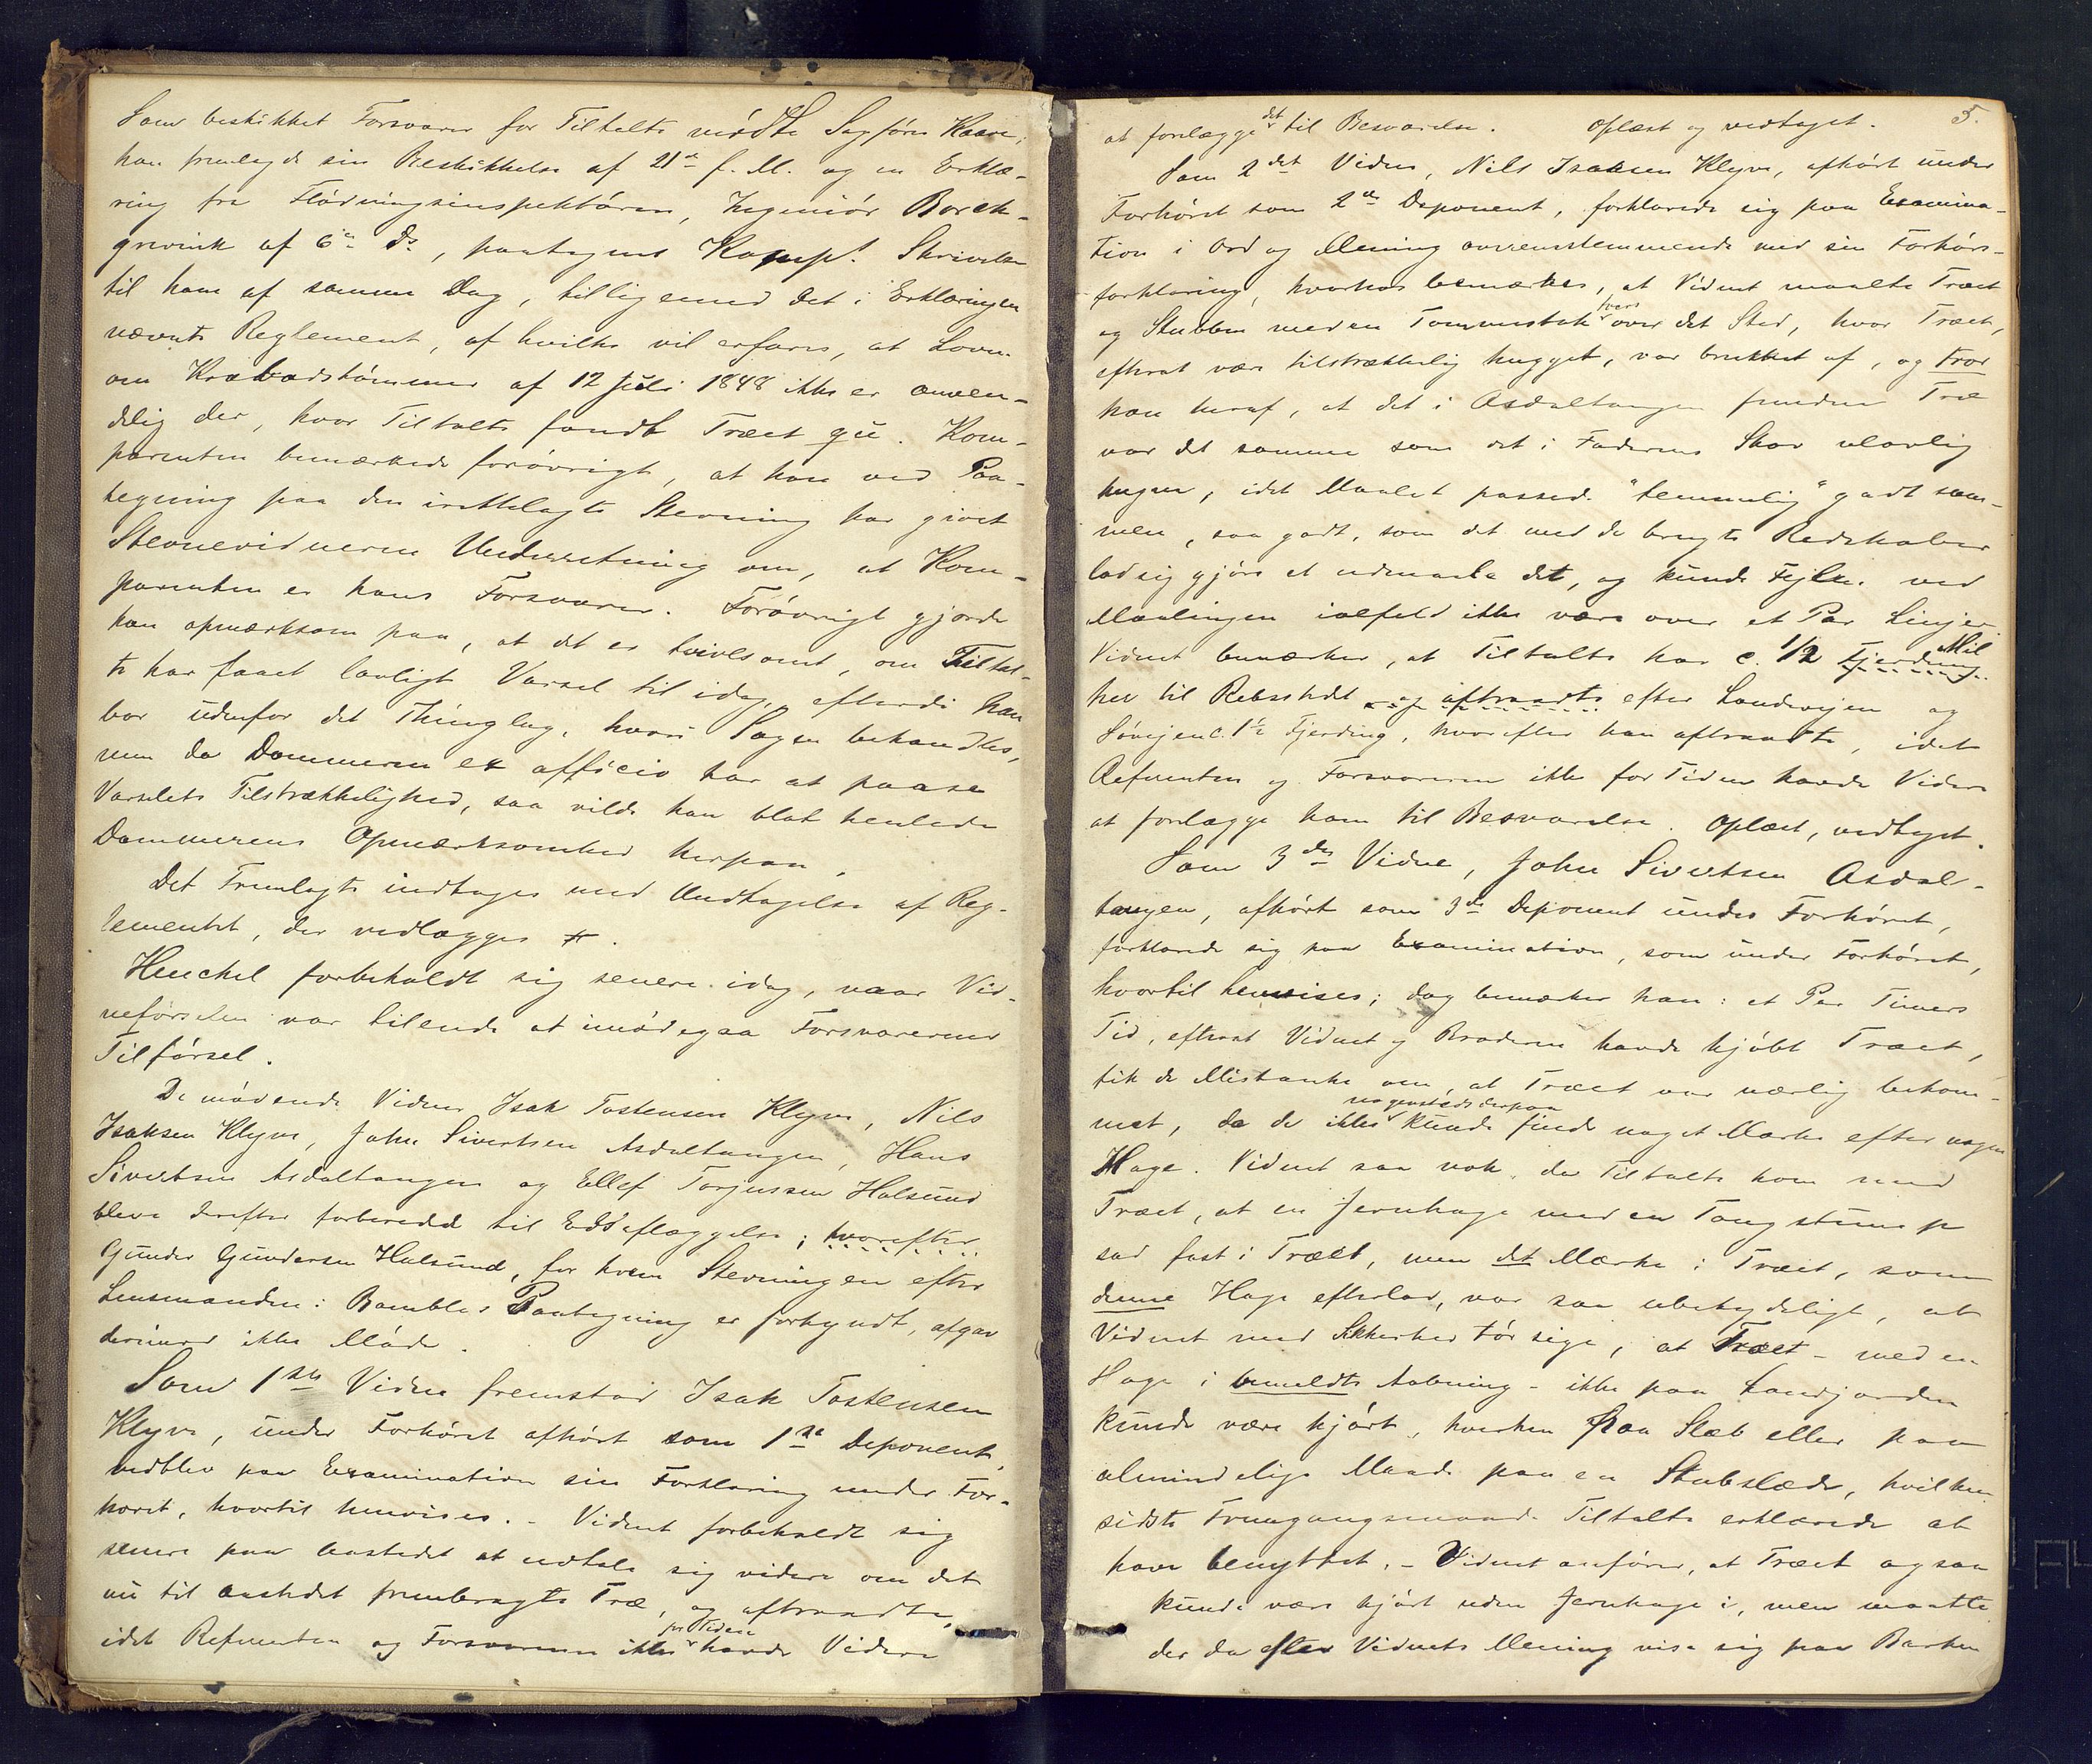 Som beskikket Forsvarer for Tiltalte mødte Sagfører
han fremlagde sin Beskikkelse af 21de f. M. og en Erklæ-
ring fra Flødningsinspektøren, Ingeniør Borch-
grevink af 6te ds, paategnet Skrivelse
til ham af samme Dag, tilligemed det i Erklæringen
nævnte Reglement, af hvilke vil erfares, at Loven
om Kravedstømmer af 12 Juli 1848 ikke er anven-
delig der, hvor Tiltalte fandt Træet qu. Kom-
parenten bemærkede forøvrigt, at han ved Paa-
tegning paa den irettelagte Stevning har givet
Stevnevidnerne Underretning om, at Kom-
parenten er hans Forsvarer. Forøvrigt gjorde
han opmærksom paa, at det er tvivlsomt, om Tiltal-
te har faaet lovligt Varsel til idag, efterdi han
bor udenfor det Thinglag, hvori Sagen behandles,
men da Dommeren ex officio har at paase
Varselets Tilstrækkelighed, saa vilde han blot henlede
Dommerens Opmærksomhed herpaa.
Det Fremlagte indtages med Undtagelse af Reg-
lementet, der vedlægges
Henckel forbeholdt sig senere idag, naar Vid-
neførselen var tilende at imødegaa Forsvarerens
Tilførsel.
De mødende Vidner Isak Tostensen Klyve, Nils
Isaksen Klyve, John Sivertsen Asdaltangen, Hans
Sivertsen Asdaltangen og Ellef Torjussen Halsund
bleve derefter forberedt til Edsaflæggelse; hvorefter
Gunder Gundersen Halsund, for hvem Stevningen efter
Lensmanden i Bambles Paategning er forkyndt, afgav
derimod ikke Møde.
Som 1ste Vidne fremstod Isak Tostensen
Klyve, under Forhøret afhørt som 1ste Deponent,
vedblev paa Examination sin Forklaring under For-
høret, hvortil henvises. - Vidnet forbeholdt sig
senere paa Aastedet at udtale sig videre om det
nu til Aastedet frembragte Træ, og aftraadte,
idet Referenten og Forsvareren ikke for Tiden havde Videre
5.
at forelægge det til Besvarelse. Oplæst og vedtaget.
Som 2det Vidne, Nils Isaksen Klyve, afhørt under
Forhøret som 2den Deponent, forklarede sig paa Examina-
tion i Ord og Mening overensstemmende med sin Forhørs-
forklaring, hvorhos bemærkes, at Vidnet maalte Træet
og Stubben med en Tommestok tvers over det Sted, hvor Træet,
efterat være tilstrækkelig hugget, var brukket af, og tror
han heraf, at det i Asdaltangen fundne Træ
var det samme som det i Faderens Skov ulovlig
hugne, idet Maalet passede "temmelig" godt sam-
men, saa godt, som det med de brugte Redskaber
lod sig gjøre at udmaale det, og kunde Fejlen ved
Maalingen ialfald ikke være over et Par Linjer
Vidnet bemærker, at Tiltalte har c. 1/2 Fjerding Mil
her til Retsstedet og aftraadte efter Landevejen og
Søvejen c. 1½ Fjerding, hvorefter han aftraadte, idet
Referenten og Forsvareren ikke for Tiden havde Videre
at forelægge ham til Besvarelse. Oplæst, vedtaget.
Som 3die Vidne, John Sivertsen Asdal-
tangen, afhørt som 3die Deponent under Forhøret,
forklarede sig paa Examination, som under Forhøret,
hvortil henvises; dog bemærker han: et Par Timers
Tid, efterat Vidnet og Broderen havde kjøbt Træet,
fik de Mistanke om, at Træet var uærlig bekom-
met, da de ikke nogensteds derpaa kunde finde noget Mærke efter nogen
Hage. Vidnet saa nok, da Tiltalte kom med
Træet, at en Jernhage med en Tougstump
sad fast i Træet, men det Mærke i Træet, som
denne Hage efterlod, var saa ubetydeligt, at
Vidnet med Sikkerhed tør sige, at Træet - med en
Hage i bemeldte Aabning - ikke paa Landjorden
kunde være kjørt, hverken paa Slæb eller paa
almindelige Maade paa en Stubslæde, hvilken
sidste Fremgangsmaade Tiltalte erklærede at
have benyttet. - Vidnet anfører, at Træet ogsaa
kunde være kjørt uden Jernhage i, men maatte
der da efter Vidnets Mening vise sig paa Barken